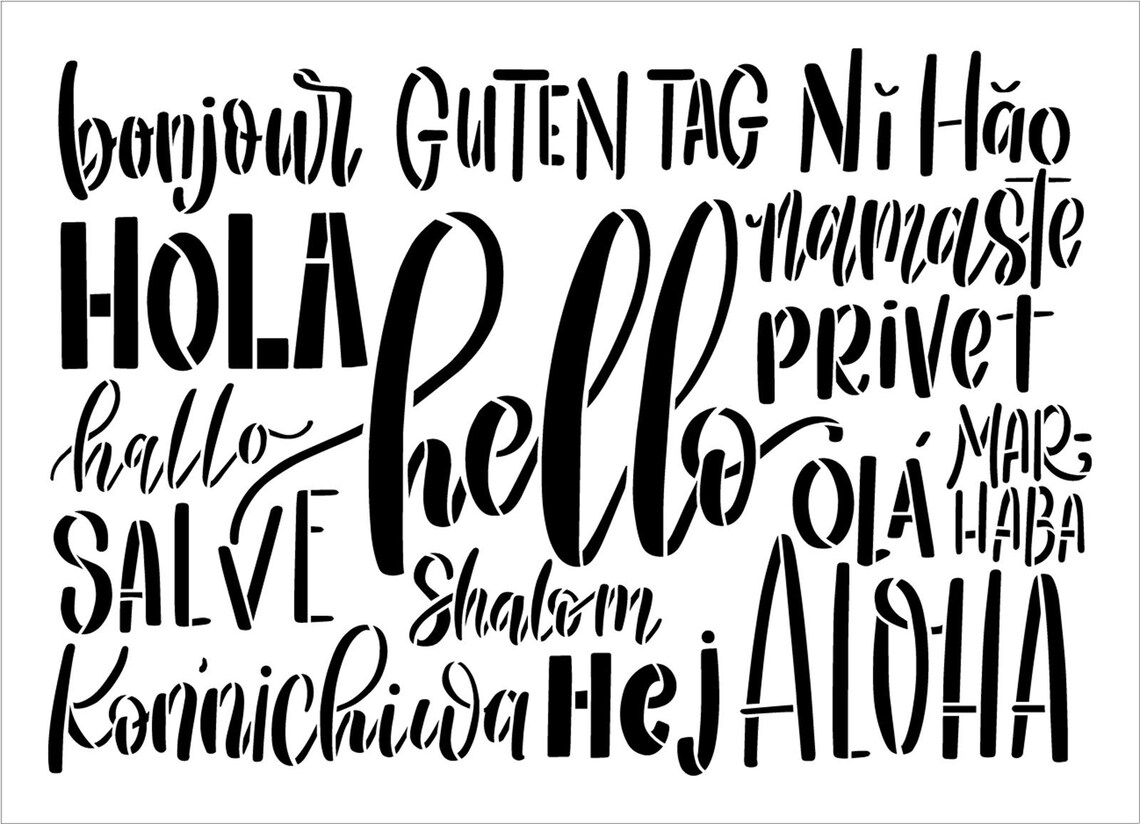 bonjour GUTEN TAG Nǐ Hǎo
HOLA hello namasте
PRIVET
hallo OLÁ MAR-
HABA
SALVE
Shalom ALOHA
Kon'nichiwa Hej